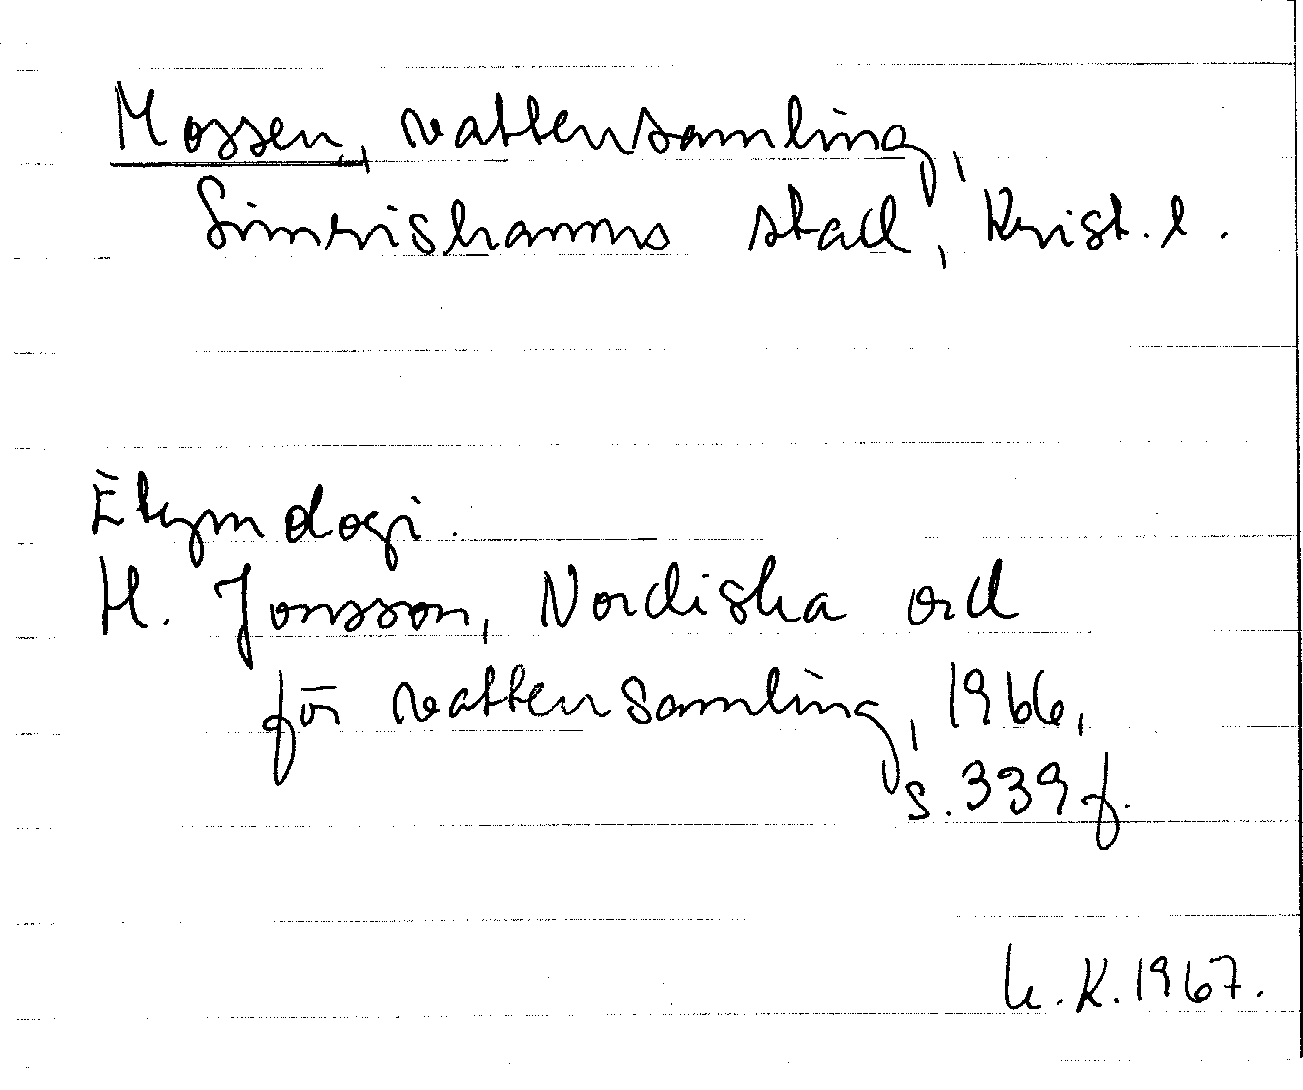 Mossen, vattensamling,
Simrishamns stad, Krist. l.
Etymologi.
H. Jonsson, Nordiska ord
för vattensamling, 1966,
s. 339 f.
K. 1967.